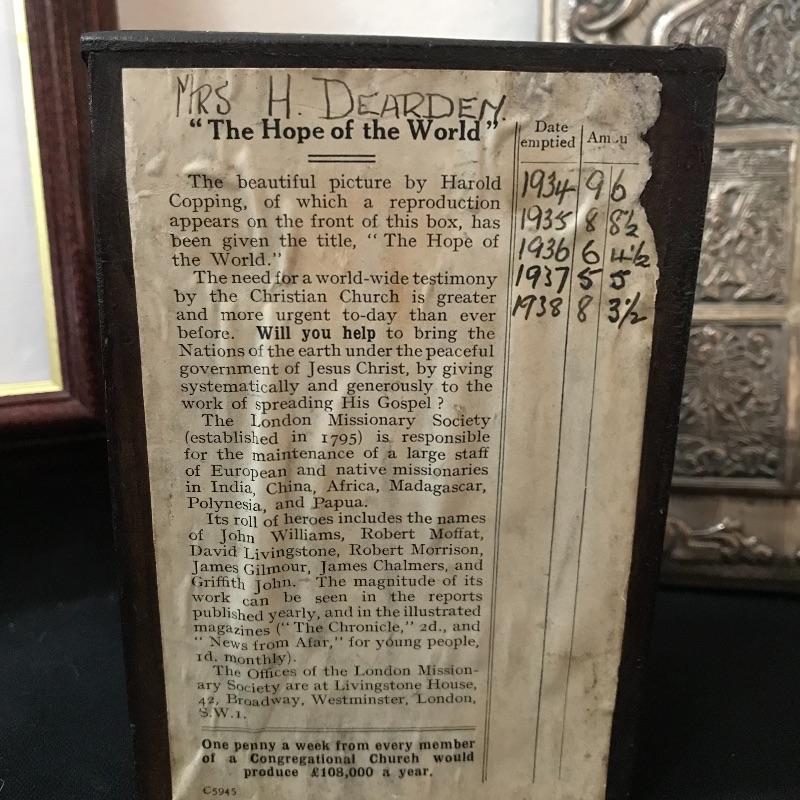 MRS H. DEARDEN.
"The Hope of the World"
The beautiful picture by Harold
Copping, of which a reproduction
appears on the front of this box, has
been given the title, "The Hope of
the World."
The need for a world-wide testimony
by the Christian Church is greater
and more urgent to-day than ever
before. Will you help to bring the
Nations of the earth under the peaceful
government of Jesus Christ, by giving
systematically and generously to the
work of spreading His Gospel ?
The London Missionary Society
(established in 1795) is responsible
for the maintenance of a large staff
of European and native missionaries
in India, China, Africa, Madagascar,
Polynesia, and Papua.
Its roll of heroes includes the names
of John Williams, Robert Moffat,
David Livingstone, Robert Morrison,
James Gilmour, James Chalmers, and
Griffith John. The magnitude of its
work can be seen in the reports
published yearly, and in the illustrated
magazines ("The Chronicle," 2d., and
"News from Afar," for young people,
1d. monthly).
The Offices of the London Mission-
ary Society are at Livingstone House,
42, Broadway, Westminster, London,
S.W.1.
One penny a week from every member
of a Congregational Church would
produce £108,000 a year.
C5945
Date
emptied
1934 9 6
1935 8 8½
1936 6 4½
1937 5 5
1938 8 3½